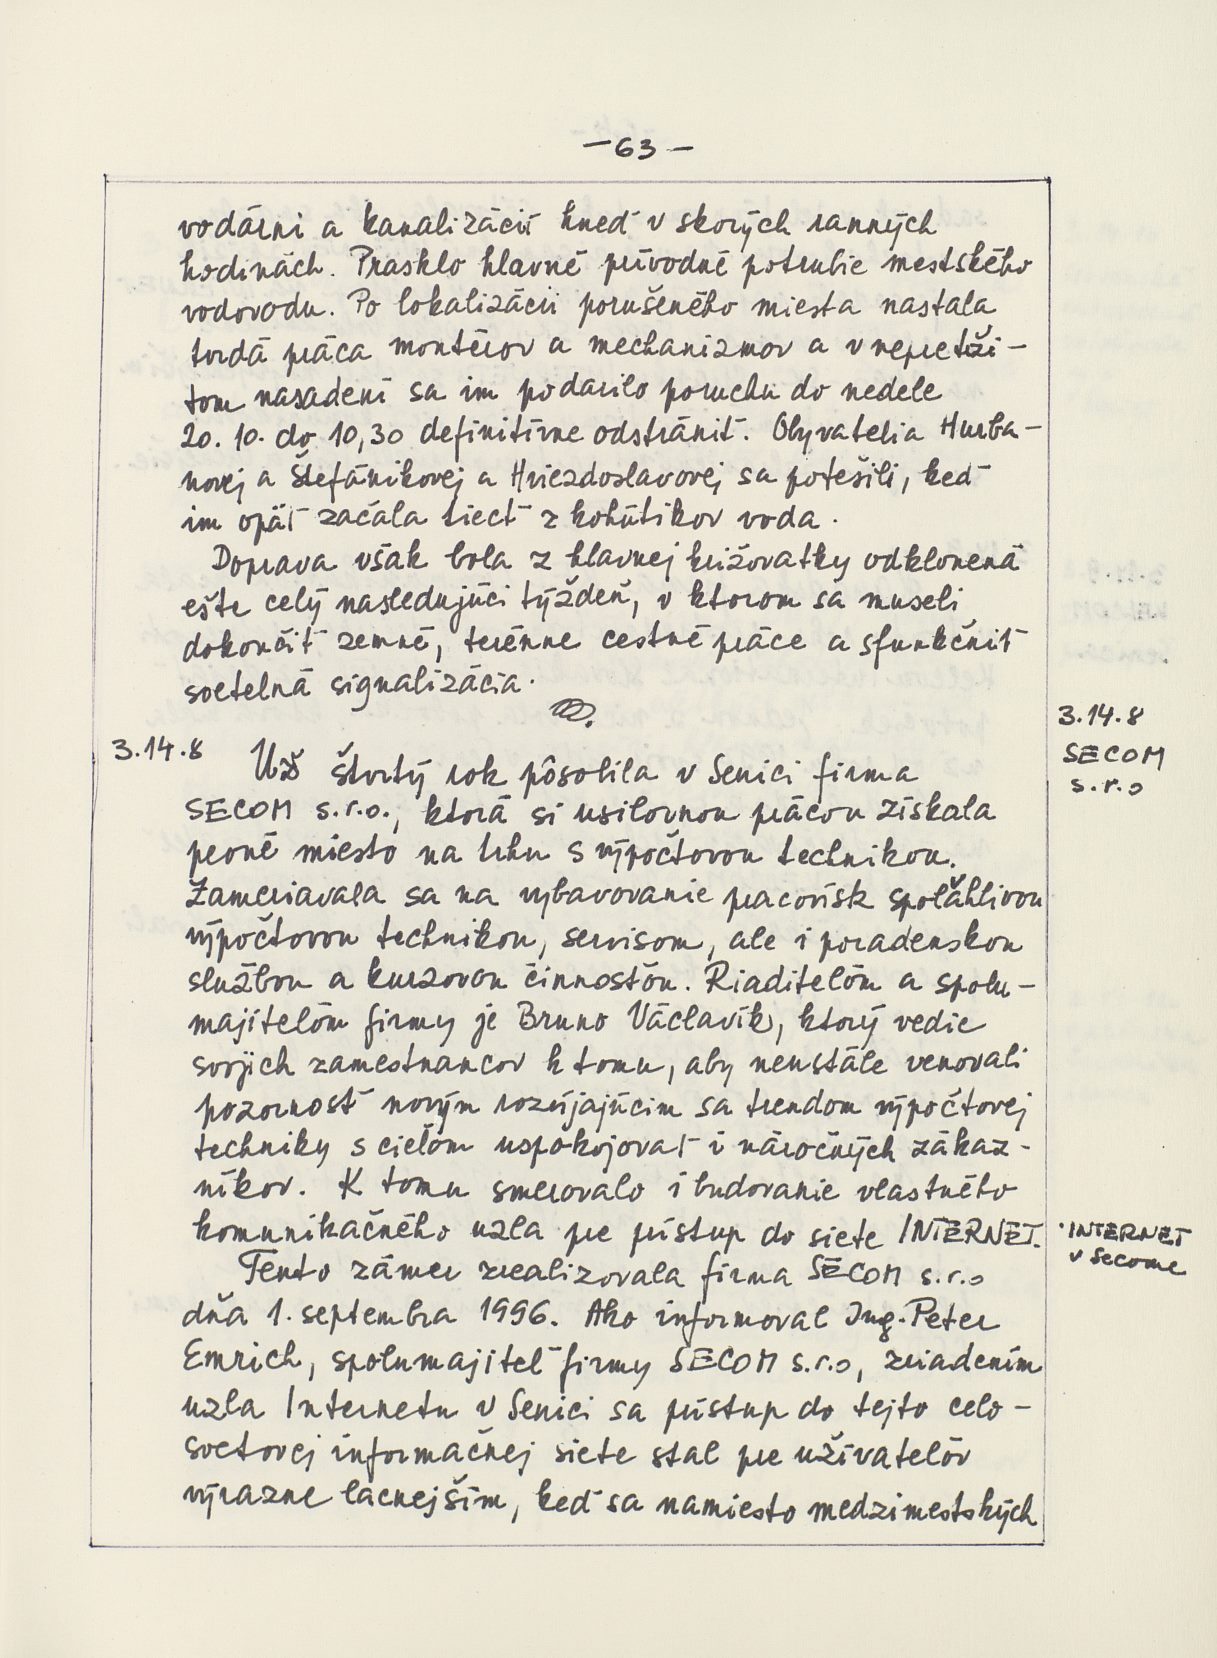 —63—
vodárni a kanalizácií hneď v skorých ranných
hodinách. Prasklo hlavné prívodné potrubie mestského
vodovodu. Po lokalizácii porušeného miesta nastala
tvrdá práca montérov a mechanizmov a v nepretrži-
tom nasadení sa im podarilo poruchu do nedele
20. 10. do 10,30 definitívne odstrániť. Obyvatelia Hurba-
novej a Štefánikovej a Hviezdoslavovej sa potešili, keď
im opäť začala tiecť z kohútikov voda.
Doprava však bola z hlavnej križovatky odklonená
ešte celý nasledujúci týždeň, v ktorom sa museli
dokončiť zemné, terénne cestné práce a sfunkčniť
svetelná signalizácia.
3.14.8
SECOM
s.r.o
3.14.8 Už štvrtý rok pôsobila v Senici firma
SECOM s.r.o., ktorá si usilovnou prácou získala
pevné miesto na trhu s výpočtovou technikou.
Zameriavala sa na vybavovanie pracovísk spoľăhlivou
výpočtovou technikou, servisom, ale i poradenskou
službou a kurzovou činnosťou. Riaditeľom a spolu-
majiteľom firmy je Bruno Václavík, ktorý vedie
svojich zamestnancov k tomu, aby neustále venovali
pozornosť novým rozvíjajúcim sa trendom výpočtovej
techniky s cieľom uspokojovať i náročných zákaz-
níkov. K tomu smerovalo i budovanie vlastného
komunikačného uzla pre prístup do siete INTERNET.
INTERNET
v Secome
Tento zámer zrealizovala firma SECOM s.r.o
dňa 1. septembra 1996. Ako informoval Ing. Peter
Emrich, spolumajiteľ firmy SECOM s.r.o, zriadením
uzla Internetu v Senici sa prístup do tejto celo-
svetovej informačnej siete stal pre užívateľov
výrazne lacnejším, keď sa namiesto medzimestských